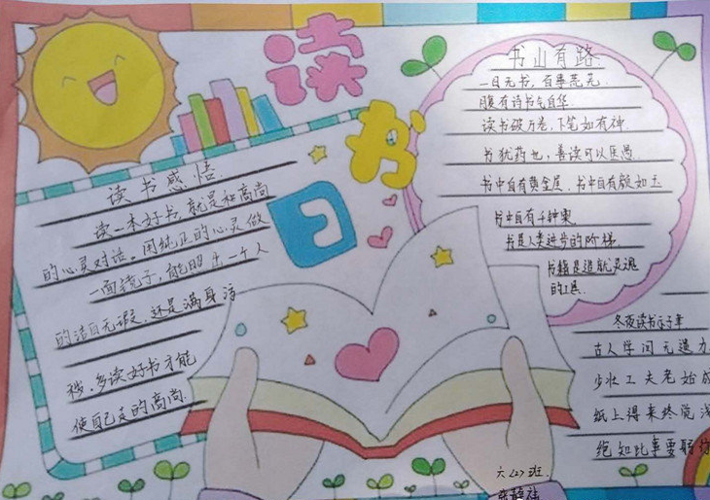 读
书
日
读书感悟
读一本好书,就是和高尚
的心灵对话。用纯正的心灵做
一面镜子,能照出一个人
的洁白无瑕,还是满身污
秽。多读好书才能
使自己变的高尚
书山有路
一日无书,百事荒芜.
腹有诗书气自华
读书破万卷,下笔如有神.
书犹药也,善读可以医愚.
书中自有黄金屋,书中自有颜如玉
书中自有千钟粟
书是人类进步的阶梯.
书籍是造就灵魂
的工具.
冬夜读书示子聿
古人学问无遗力
少壮工夫老始成
纸上得来终觉浅
绝知此事要躬
六(2)班